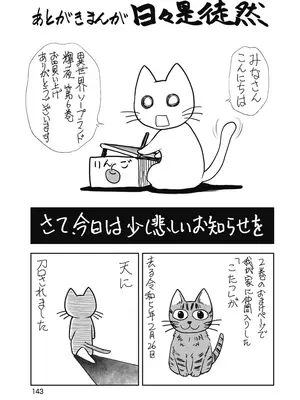 あとがきまんが 日々是徒然
みなさん
こんにちは
異世界ソープランド
輝夜 第6巻
お買い上げ
ありがとうございます
りんご
さて、今日は少し悲しいお知らせを
2巻のおまけページで
我が家に仲間入りした
「こたつ」が
去る令和5年2月26日
天に
召されました
143